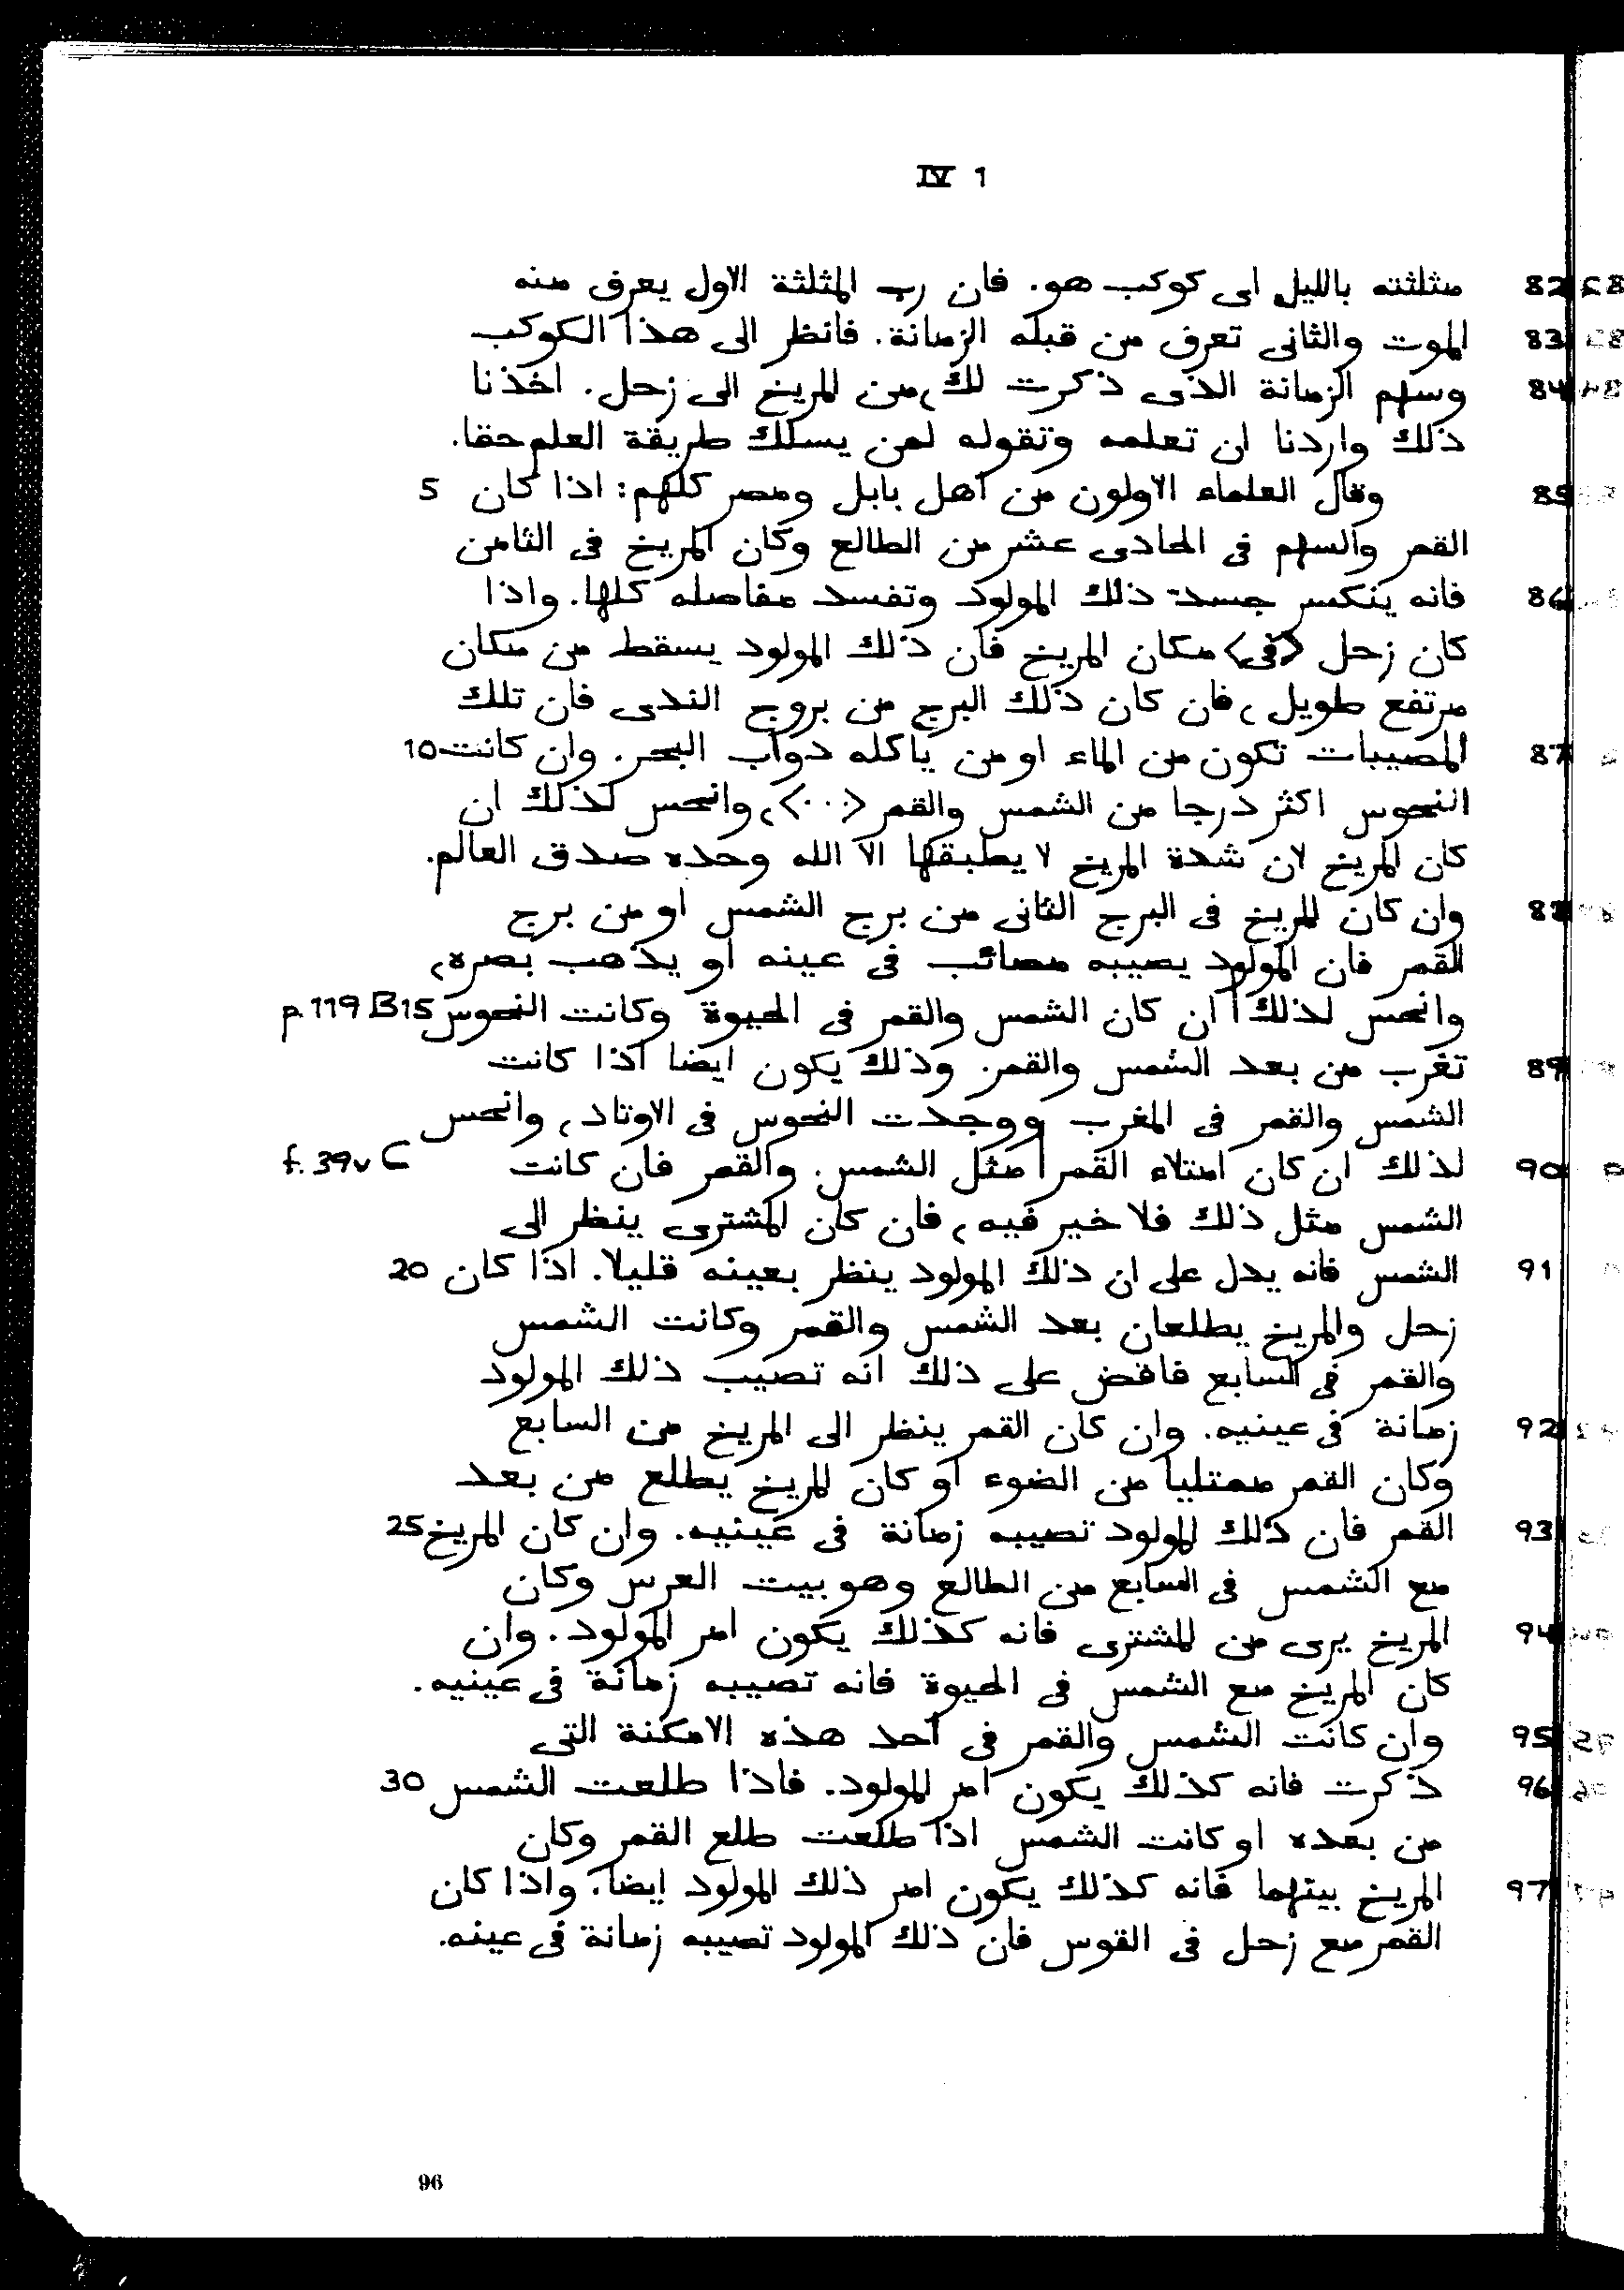 IV 1
82 مثلثته بالليل اى كوكب هو. فان رب المثلثة الاول يعرف منه
83 الموت والثانى تعرف من قبله الزمانة. فانظر الى هذا الكوكب
84 وسهم الزمانة الذى ذكرت لك، من المريخ الى زحل. اخذنا
ذلك واردنا ان تعلمه وتقوله لمن يسلك طريقة العلم حقا.
85 وقال العلماء الاولون من اهل بابل ومصر كلهم: اذا كان 5
القمر والسهم فى الحادى عشر من الطالع وكان المريخ فى الثامن
86 فانه ينكسر جسد ذلك المولود وتفسد مفاصله كلها. واذا
كان زحل <فى> مكان المريخ فان ذلك المولود يسقط من مكان
مرتفع طويل، فان كان ذلك البرج من بروج الندى فان تلك
87 المصيبات تكون من الماء او من ياكله دواب البحر. وان كانت 10
النحوس اكثر درجا من الشمس والقمر <...>، وانحس لذلك ان
كان المريخ لان شدة المريخ لا يطيقها الا الله وحده صدق العالم.
88 وان كان المريخ فى البرج الثانى من برج الشمس او من برج
القمر فان المولود يصيبه مصائب فى عينه او يذهب بصره،
وانحس لذلك | ان كان الشمس والقمر فى الحيوة وكانت النحوس 15 p. 119 B
89 تغرب من بعد الشمس والقمر. وذلك يكون ايضا اذا كانت
الشمس والقمر فى المغرب ووجدت النحوس فى الاوتاد، وانحس
90 لذلك ان كان امتلاء القمر | مثل الشمس. والقمر فان كانت f. 39v C
الشمس مثل ذلك فلا خير فيه، فان كان المشترى ينظر الى
91 الشمس فانه يدل على ان ذلك المولود ينظر بعينه قليلا. اذا كان 20
زحل والمريخ يطلعان بعد الشمس والقمر وكانت الشمس
والقمر فى السابع فاقض على ذلك انه تصيب ذلك المولود
92 زمانة فى عينيه. وان كان القمر ينظر الى المريخ من السابع
وكان القمر ممتليا من الضوء او كان المريخ يطلع من بعد
93 القمر فان ذلك المولود تصيبه زمانة فى عينيه. وان كان المريخ 25
مع الشمس فى السابع من الطالع وهو بيت العرس وكان
94 المريخ يرى من المشترى فانه كذلك يكون امر المولود. وان
كان المريخ مع الشمس فى الحيوة فانه تصيبه زمانة فى عينيه.
95 وان كانت الشمس والقمر فى احد هذه الامكنة التى
96 ذكرت فانه كذلك يكون امر المولود. فاذا طلعت الشمس 30
من بعده او كانت الشمس اذا طلعت طلع القمر وكان
97 المريخ بينهما فانه كذلك يكون امر ذلك المولود ايضا. واذا كان
القمر مع زحل فى القوس فان ذلك المولود تصيبه زمانة فى عينه.
96